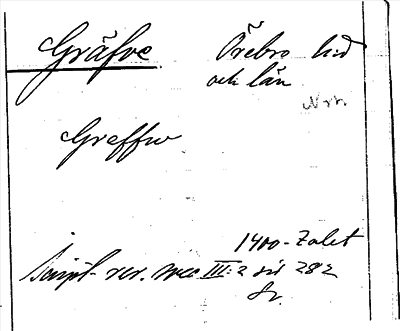 Gräfve Örebro hd
och län
Nrk.
Greffw
1400-talet
Script. rer. svec III:2 sid 282
Sv.